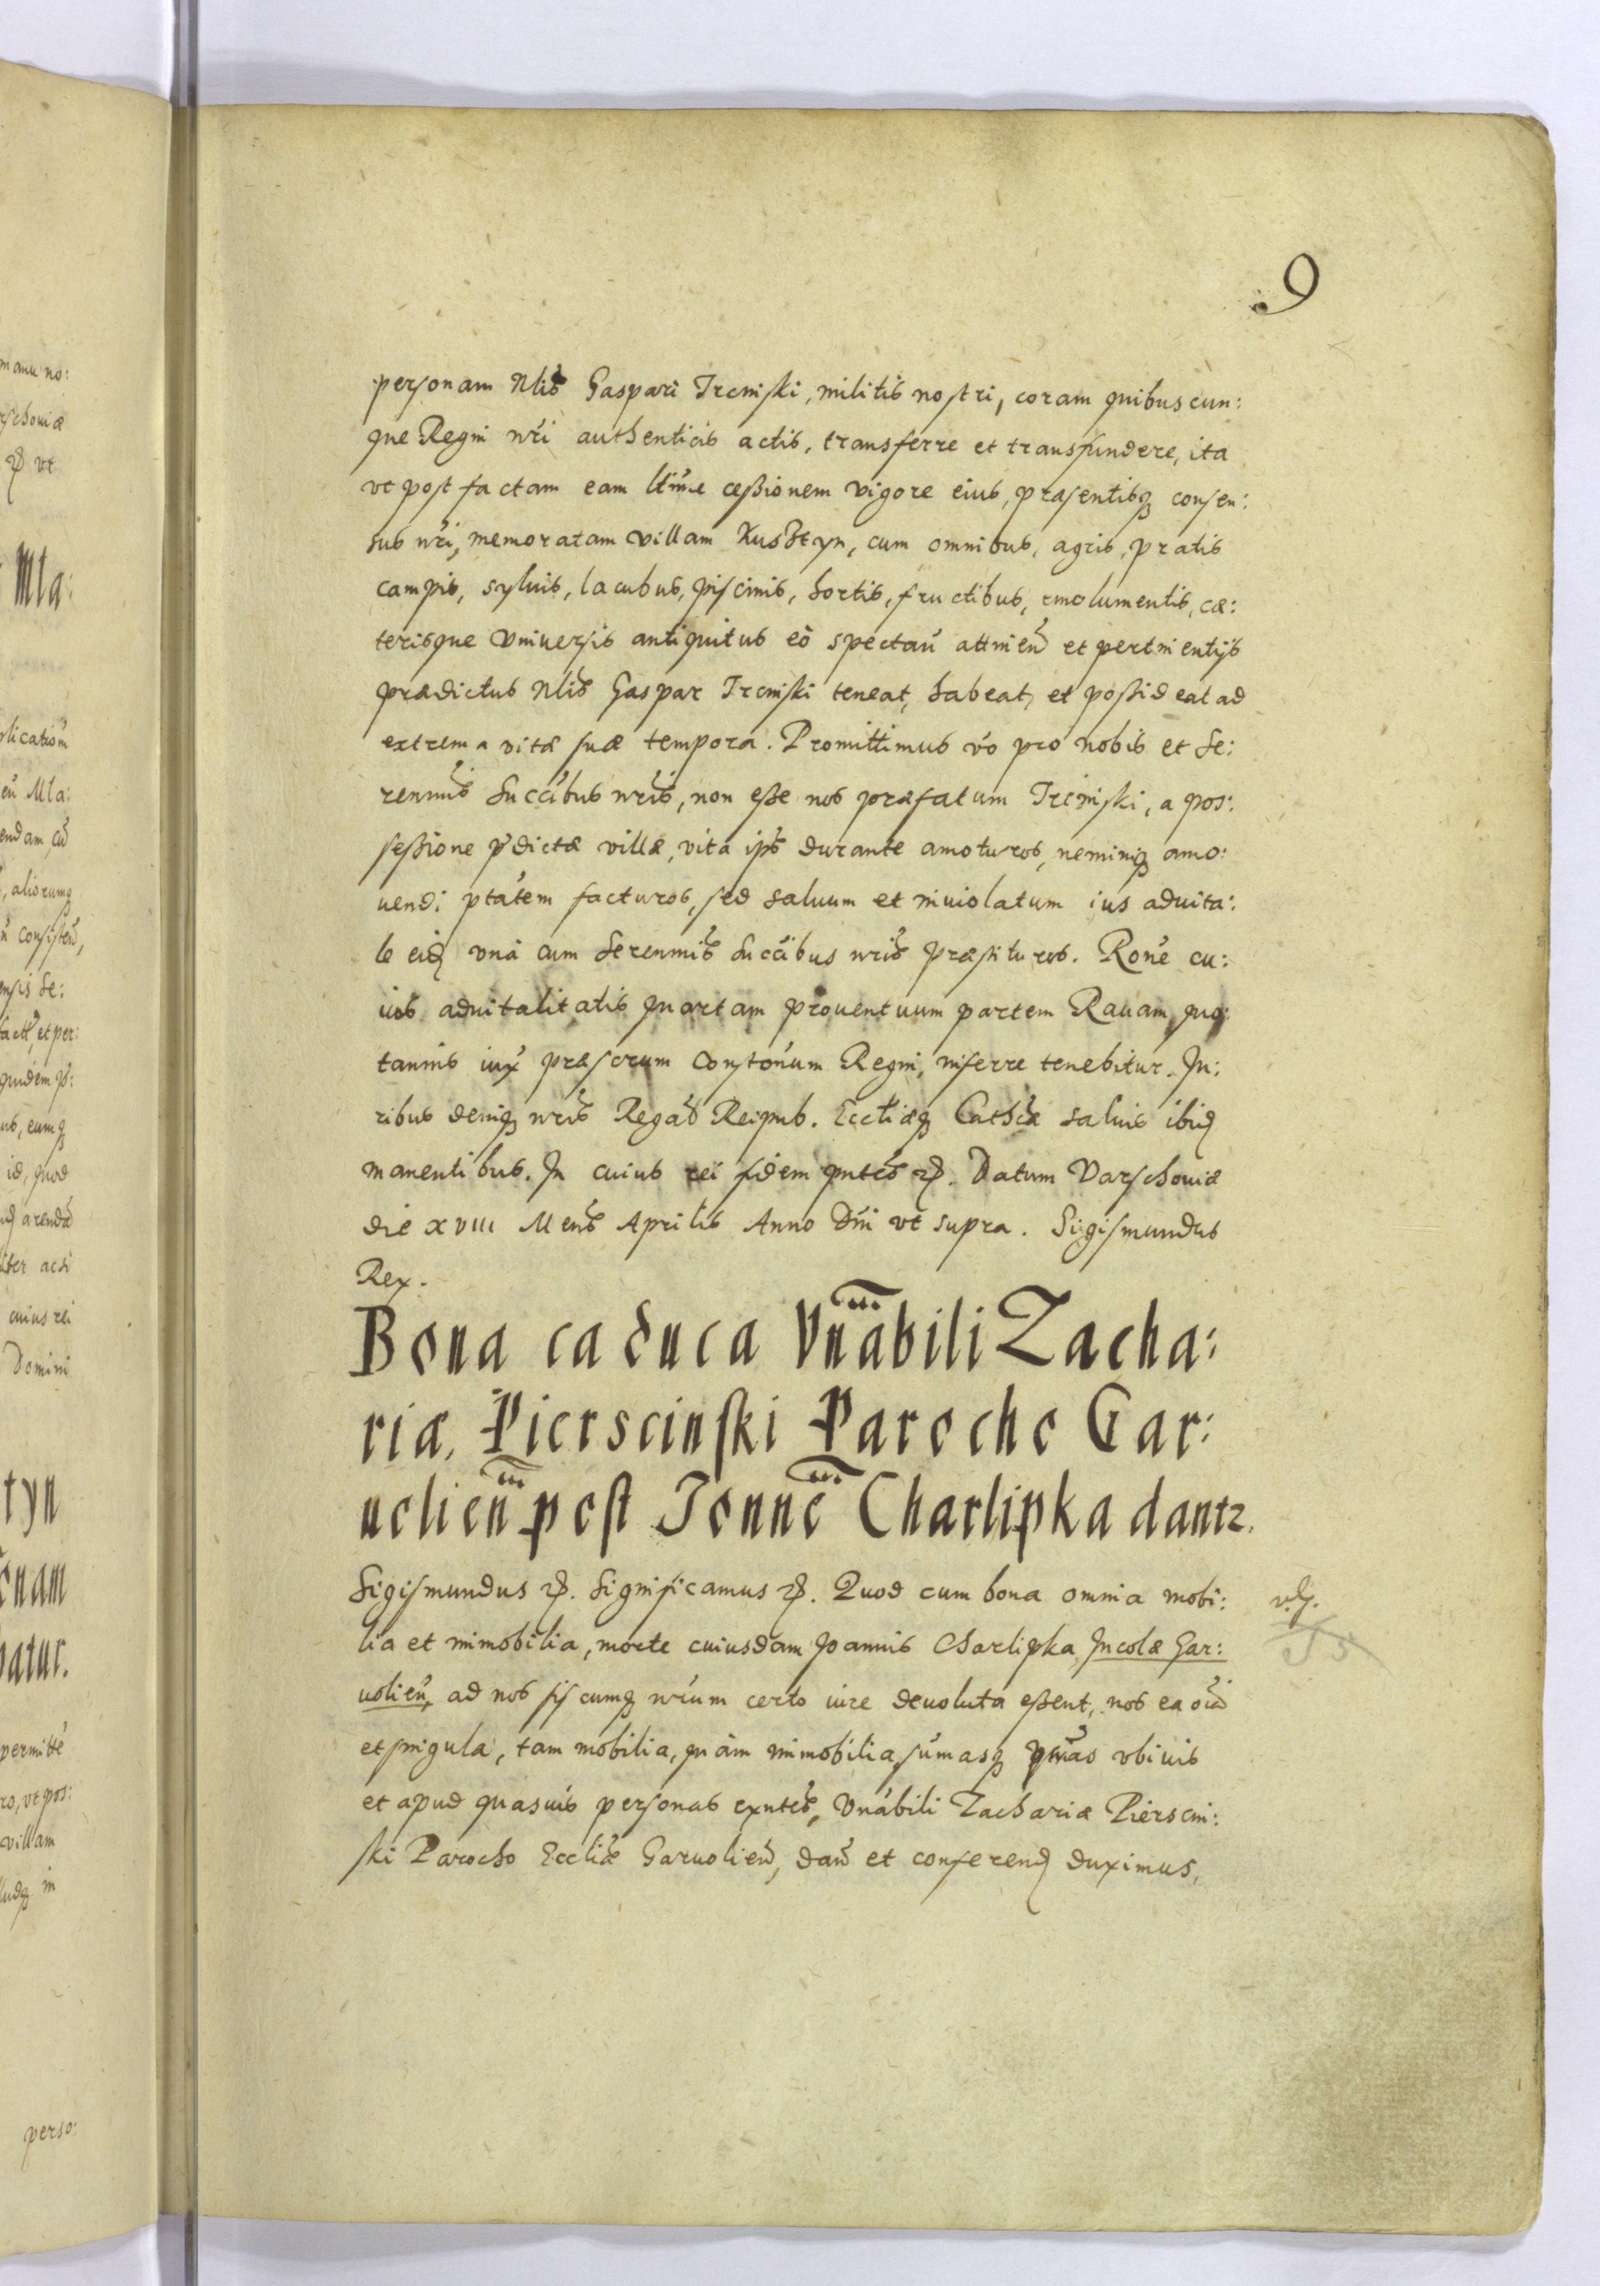 9
personam Nlis Gaspari Treniski, militis nostri, coram quibuscun:
que Regni nri authenticis actis, transferre et transfundere, ita
vt post factam eam ltime cessionem vigore eius, præsentisq consen:
sus nri, memoratam villam Kusstyn, cum omnibus, agris, pratis
campis, syluis, lacubus, piscinis, hortis, fructibus, emolumentis, cæ:
terisque vniuersis antiquitus eò spectan attinen et pertinentijs
prædictus Nlis Gaspar Treniski teneat, habeat, et possideat ad
extrema vitæ suæ tempora. Promittimus vo pro nobis et Se:
renmis Succibus nris, non esse nos præfatum Treniski, a pos:
sessione pdictæ villæ, vita ips durante amoturos, neminiq amo:
uendi ptatem facturos, sed saluum et inuiolatum ius aduita:
le eid vna cum Serenmis Succibus nris præstituros. Rone cu:
ius aduitalitatis quartam prouentuum partem Rauam quo:
tannis iux præscrum Constonum Regni, inferre tenebitur. Ju:
ribus deniq nris Regal Reipub. Eccliæq Cathcæ saluis ibid
manentibus. In cuius rei fidem pntes etc. Datum Varschouiæ
die XVIII Mens Aprilis Anno Dni vt supra. Sigismundus
Rex.
Bona caduca Vnabili Zacha:
riæ Pierscinski Parocho Gar:
uolien post Ioannē Charlipka dantr.
Sigismundus etc. Significamus etc. Quod cum bona omnia mobi:
lia et immobilia, morte cuiusdam Joannis Charlipka Incolæ Gar:
uolien, ad nos fiscumq nrum certo iure deuoluta essent, nos ea oia
et singula, tam mobilia, quàm immobilia, sumasq pnias vbiuis
et apud quasuis personas exntes, Vnabili Zachariæ Pierscin:
ski Parocho Eccliæ Garuolien, dan et conferend duximus,